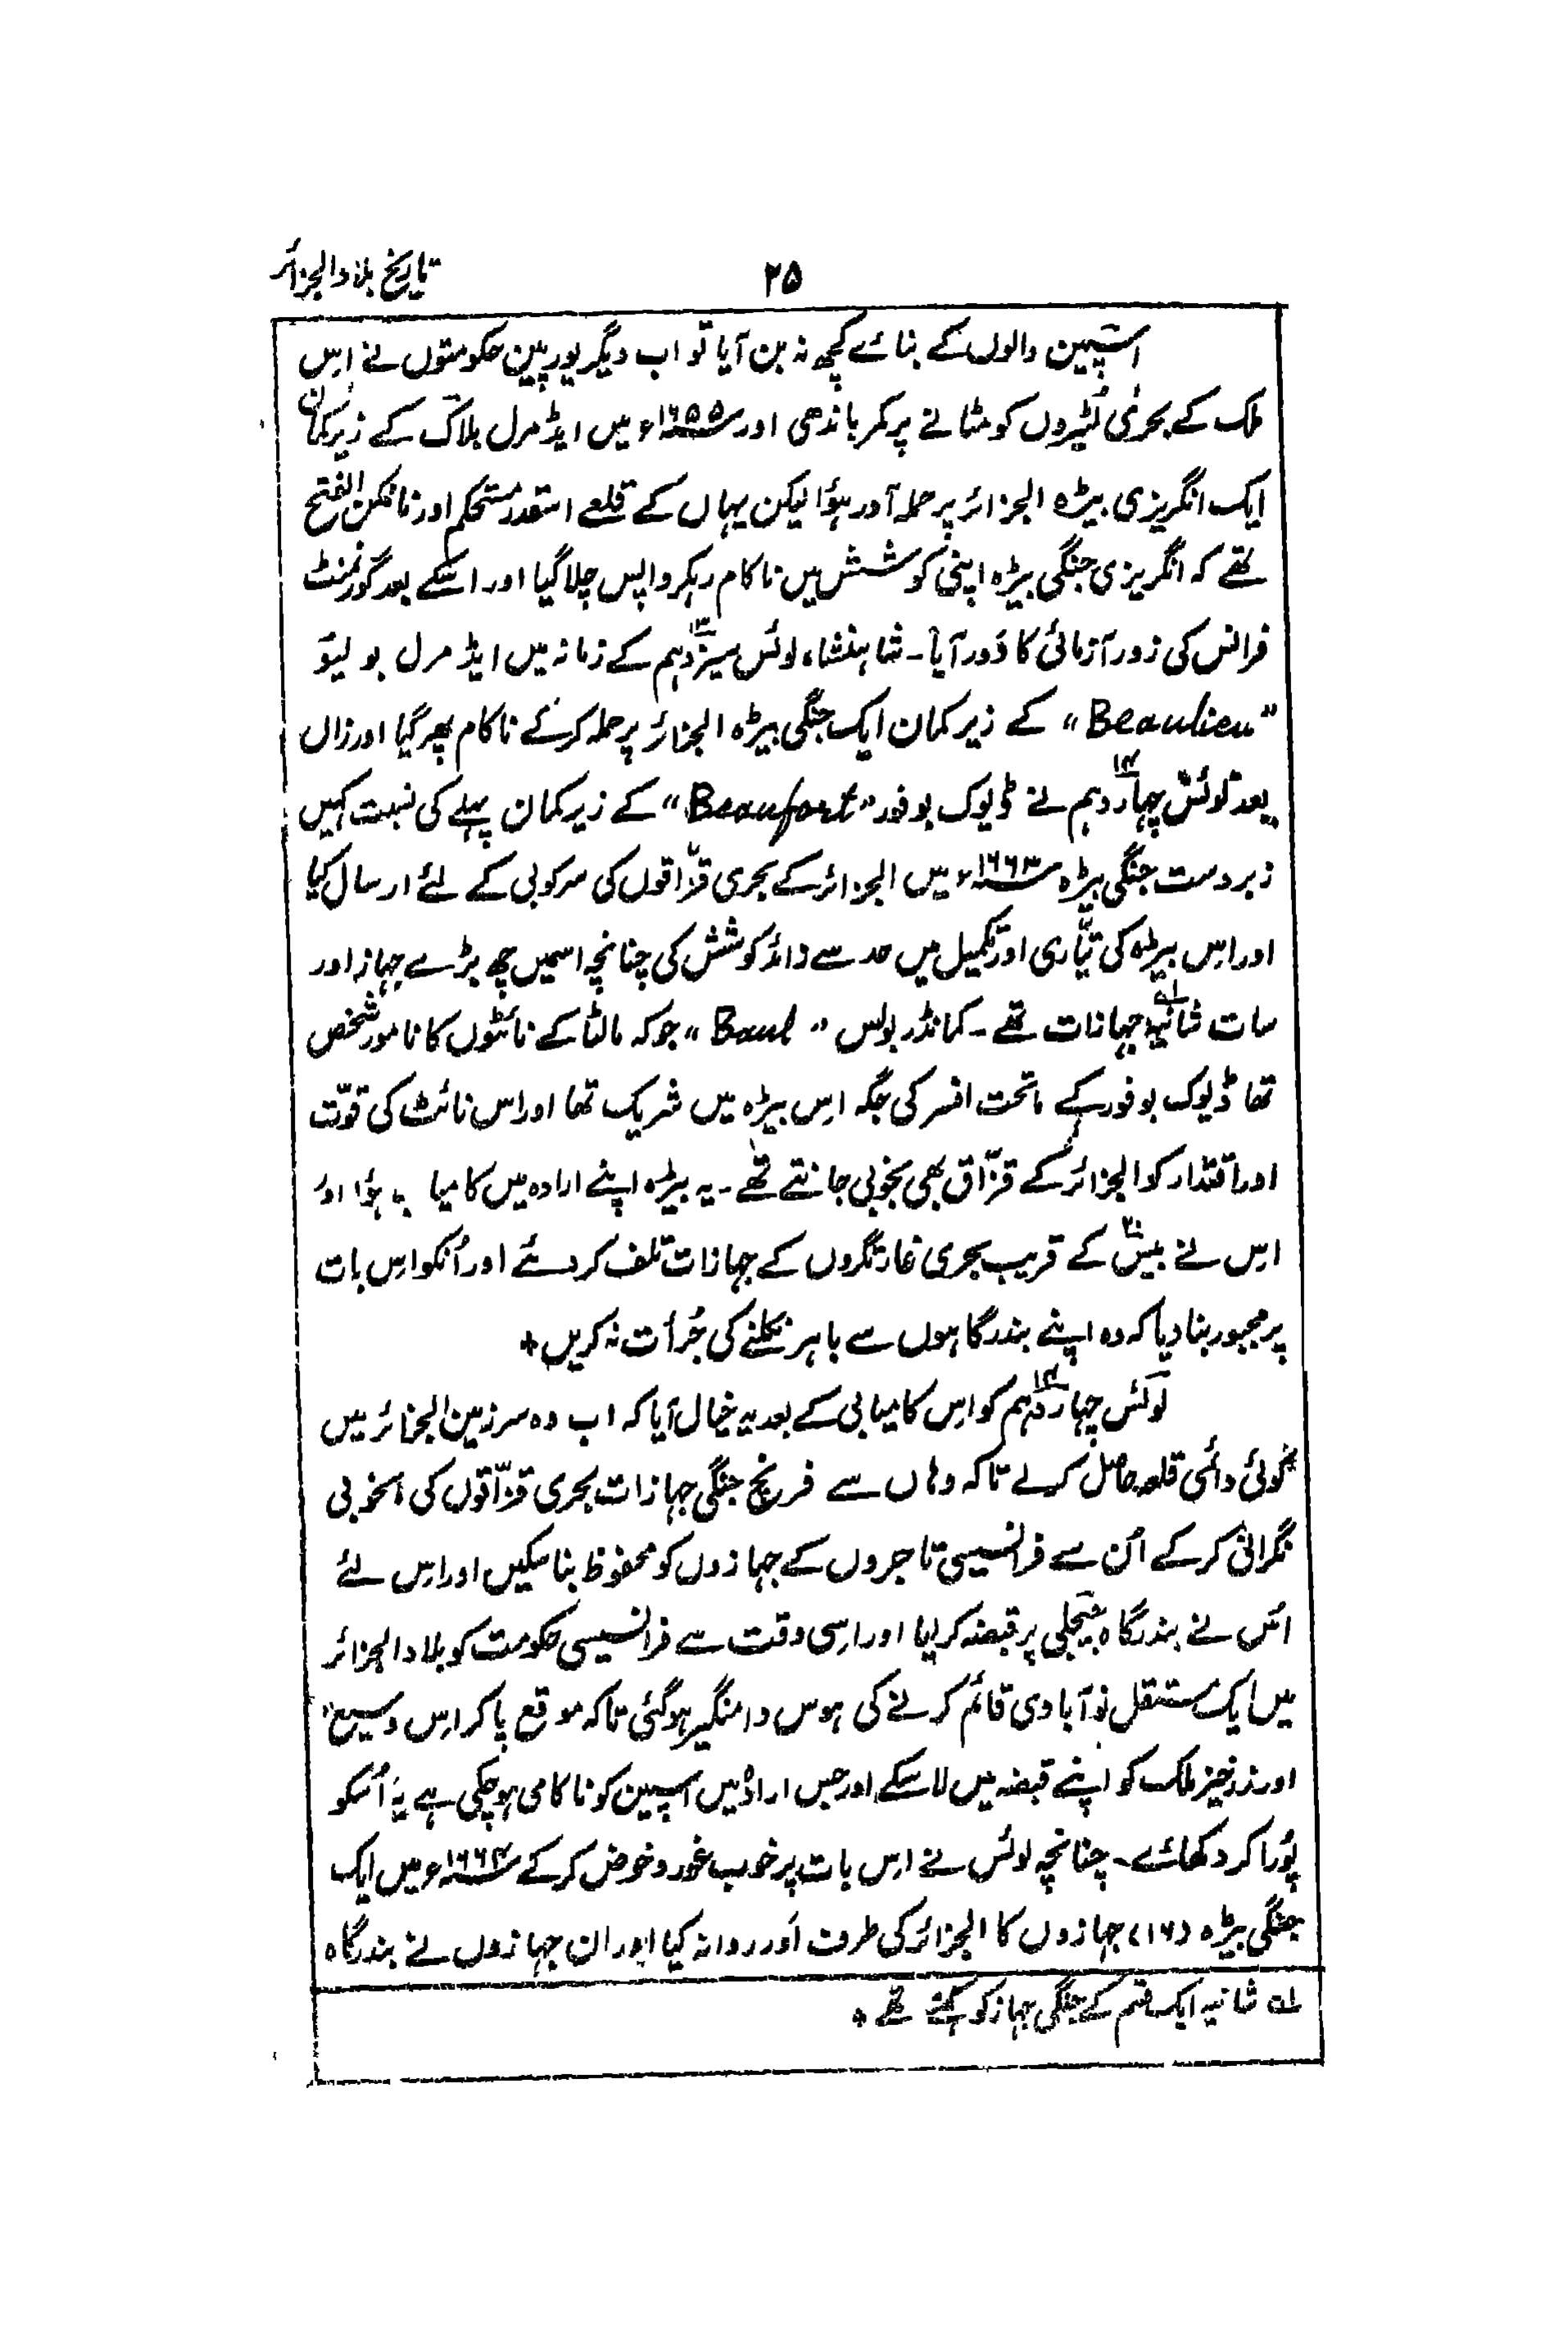 تاریخ بلاد الجزائر
۲۵
اسپین والوں کے بنائے کچھ نہ بن آیا تو اب دیگر یورپین حکومتوں نے اِس
ملک کے بحری لُٹیروں کو مٹانے پر کمر باندھی اور ۱۶۵۵ء میں ایڈمرل بلاک کے زیر کمان
ایک انگریزی بیڑہ الجزائر پر حملہ آور ہؤا لیکن یہاں کے قلعے اسقدر مستحکم اور ناممکن الفتح
تھے کہ انگریزی جنگی بیڑہ اپنی کوشش میں ناکام رہکر واپس چلا گیا اور اسکے بعد گورنمنٹ
فرانس کی زور آزمائی کا دَور آیا۔ شاہنشاہ لوئس سیزدہم ۱۳ کے زمانہ میں ایڈمرل بولیو
"Beaulieu" کے زیر کمان ایک جنگی بیڑہ الجزائر پر حملہ کرکے ناکام پھر گیا اور زاں
بعد لوئس چہاردہم ۱۴ نے ڈیوک بوفور "Beaufort" کے زیر کمان پہلے کی نسبت کہیں
زبردست جنگی بیڑہ ۱۶۶۳ء میں الجزائر کے بحری قزّاقوں کی سرکوبی کے لئے ارسال کیا
اور اِس بیڑہ کی تیّاری اور تکمیل میں حد سے زائد کوشش کی چنانچہ اسمیں چھ بڑے جہاز اور
سات شانیہ لہ جہازات تھے۔ کمانڈر بولس "Baul" جو کہ مالٹا کے نائٹوں کا نامور شخص
تھا ڈیوک بوفور کے ماتحت افسر کی جگہ اِس بیڑہ میں شریک تھا اور اس نائٹ کی قوّت
اور اقتدار کو الجزائر کے قزّاق بھی بخوبی جانتے تھے۔ یہ بیڑہ اپنے ارادہ میں کامیاب ہؤا اور
اِس نے بیس ۲۰ کے قریب بحری غارتگروں کے جہازات تلف کر دئے اور اُنکو اِس بات
پر مجبور بنا دیا کہ وہ اپنے بندرگاہوں سے باہر نکلنے کی جُرأت نہ کریں +
لوئس چہاردہم ۱۴ کو اِس کامیابی کے بعد یہ خیال آیا کہ اب وہ سرزمین الجزائر میں
کوئی دائمی قلعہ حاصل کرلے تاکہ وہاں سے فرنچ جنگی جہازات بحری قزّاقوں کی بخوبی
نگرانی کرکے اُن سے فرانسیسی تاجروں کے جہازوں کو محفوظ بنا سکیں اور اِس لئے
اُس نے بندرگاہ جیجلی پر قبضہ کر لیا اور اِسی وقت سے فرانسیسی حکومت کو بلاد الجزائر
میں ایک مستقل نوآبادی قائم کرنے کی ہوس دامنگیر ہوگئی تاکہ موقع پاکر اِس وسیع
اور زرخیز ملک کو اپنے قبضہ میں لاسکے اور جس ارادہ میں اسپین کو ناکامی ہوچکی ہے یہ اُسکو
پُورا کر دکھائے۔ چنانچہ لوئس نے اِس بات پر خوب غور و خوض کرکے ۱۶۶۴ء میں ایک
جنگی بیڑہ (۱۶) جہازوں کا الجزائر کی طرف اَور روانہ کیا اور ان جہازوں نے بندرگاہ
لہ شانیہ ایک قسم کے جنگی جہاز کو کہتے تھے +